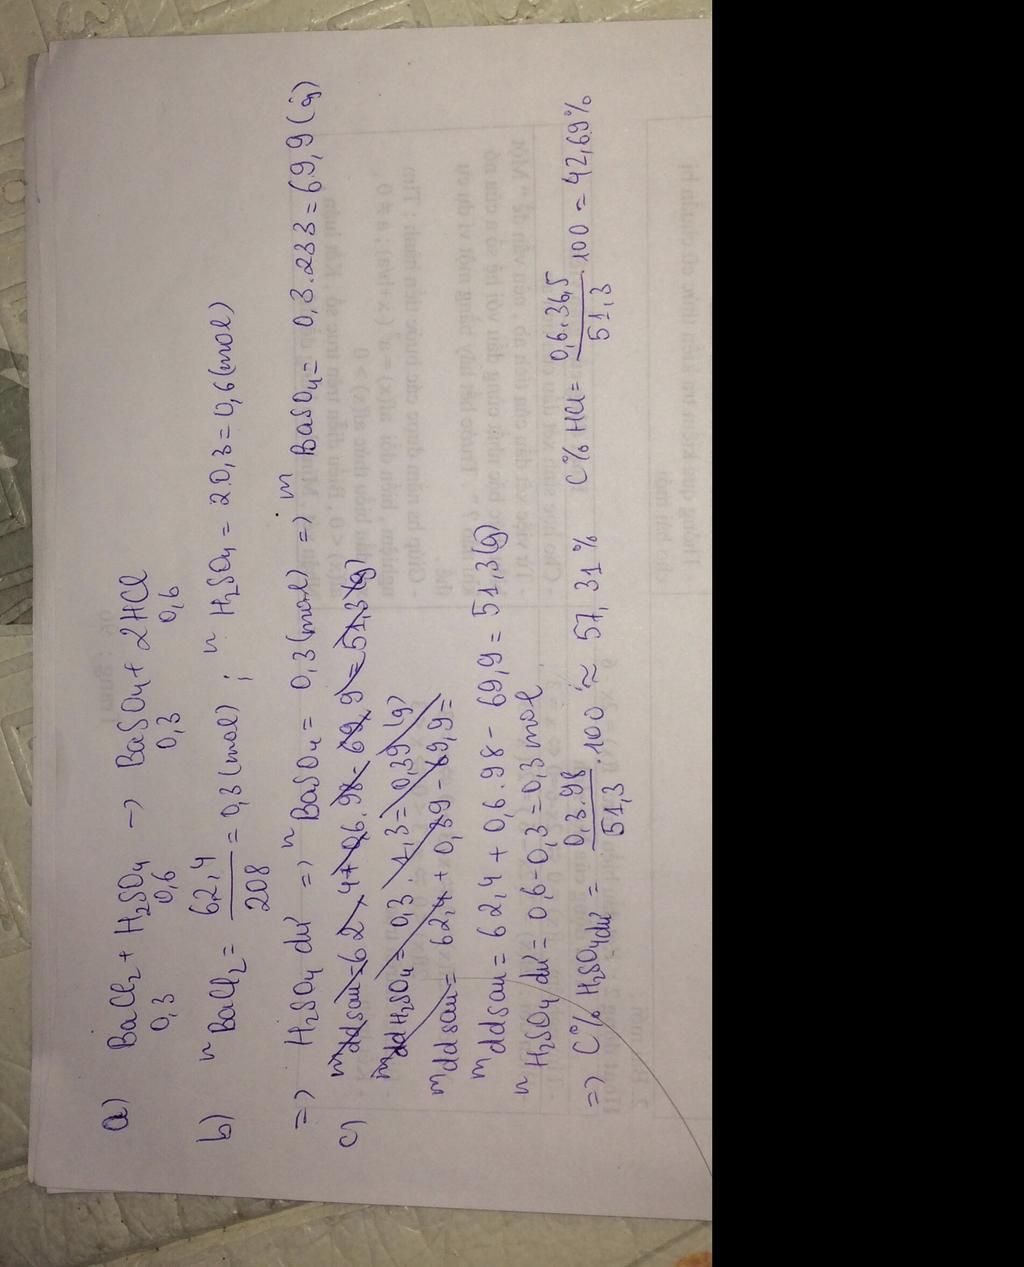 a) BaCl₂ + H₂SO₄ → BaSO₄ + 2HCl
0,3 0,6 0,3 0,6
b) nBaCl₂ = 62,4/208 = 0,3 (mol) ; nH₂SO₄ = 2.0,3 = 0,6 (mol)
=> H₂SO₄ dư => nBaSO₄ = 0,3 (mol) => mBaSO₄ = 0,3.233 = 69,9 (g)
c) mddsau = 62,4 + 0,6.98 - 69,9 = 51,3 (g)
mddH₂SO₄ = 0,3.1,3 = 0,39 (g)
mddsau = 62,4 + 0,39 - 69,9 =
mddsau = 62,4 + 0,6.98 - 69,9 = 51,3 (g)
nH₂SO₄ dư = 0,6 - 0,3 = 0,3 mol
=> C% H₂SO₄ dư = 0,3.98/51,3 .100 ≈ 57,31% C% HCl = 0,6.36,5/51,3 .100 = 42,69%